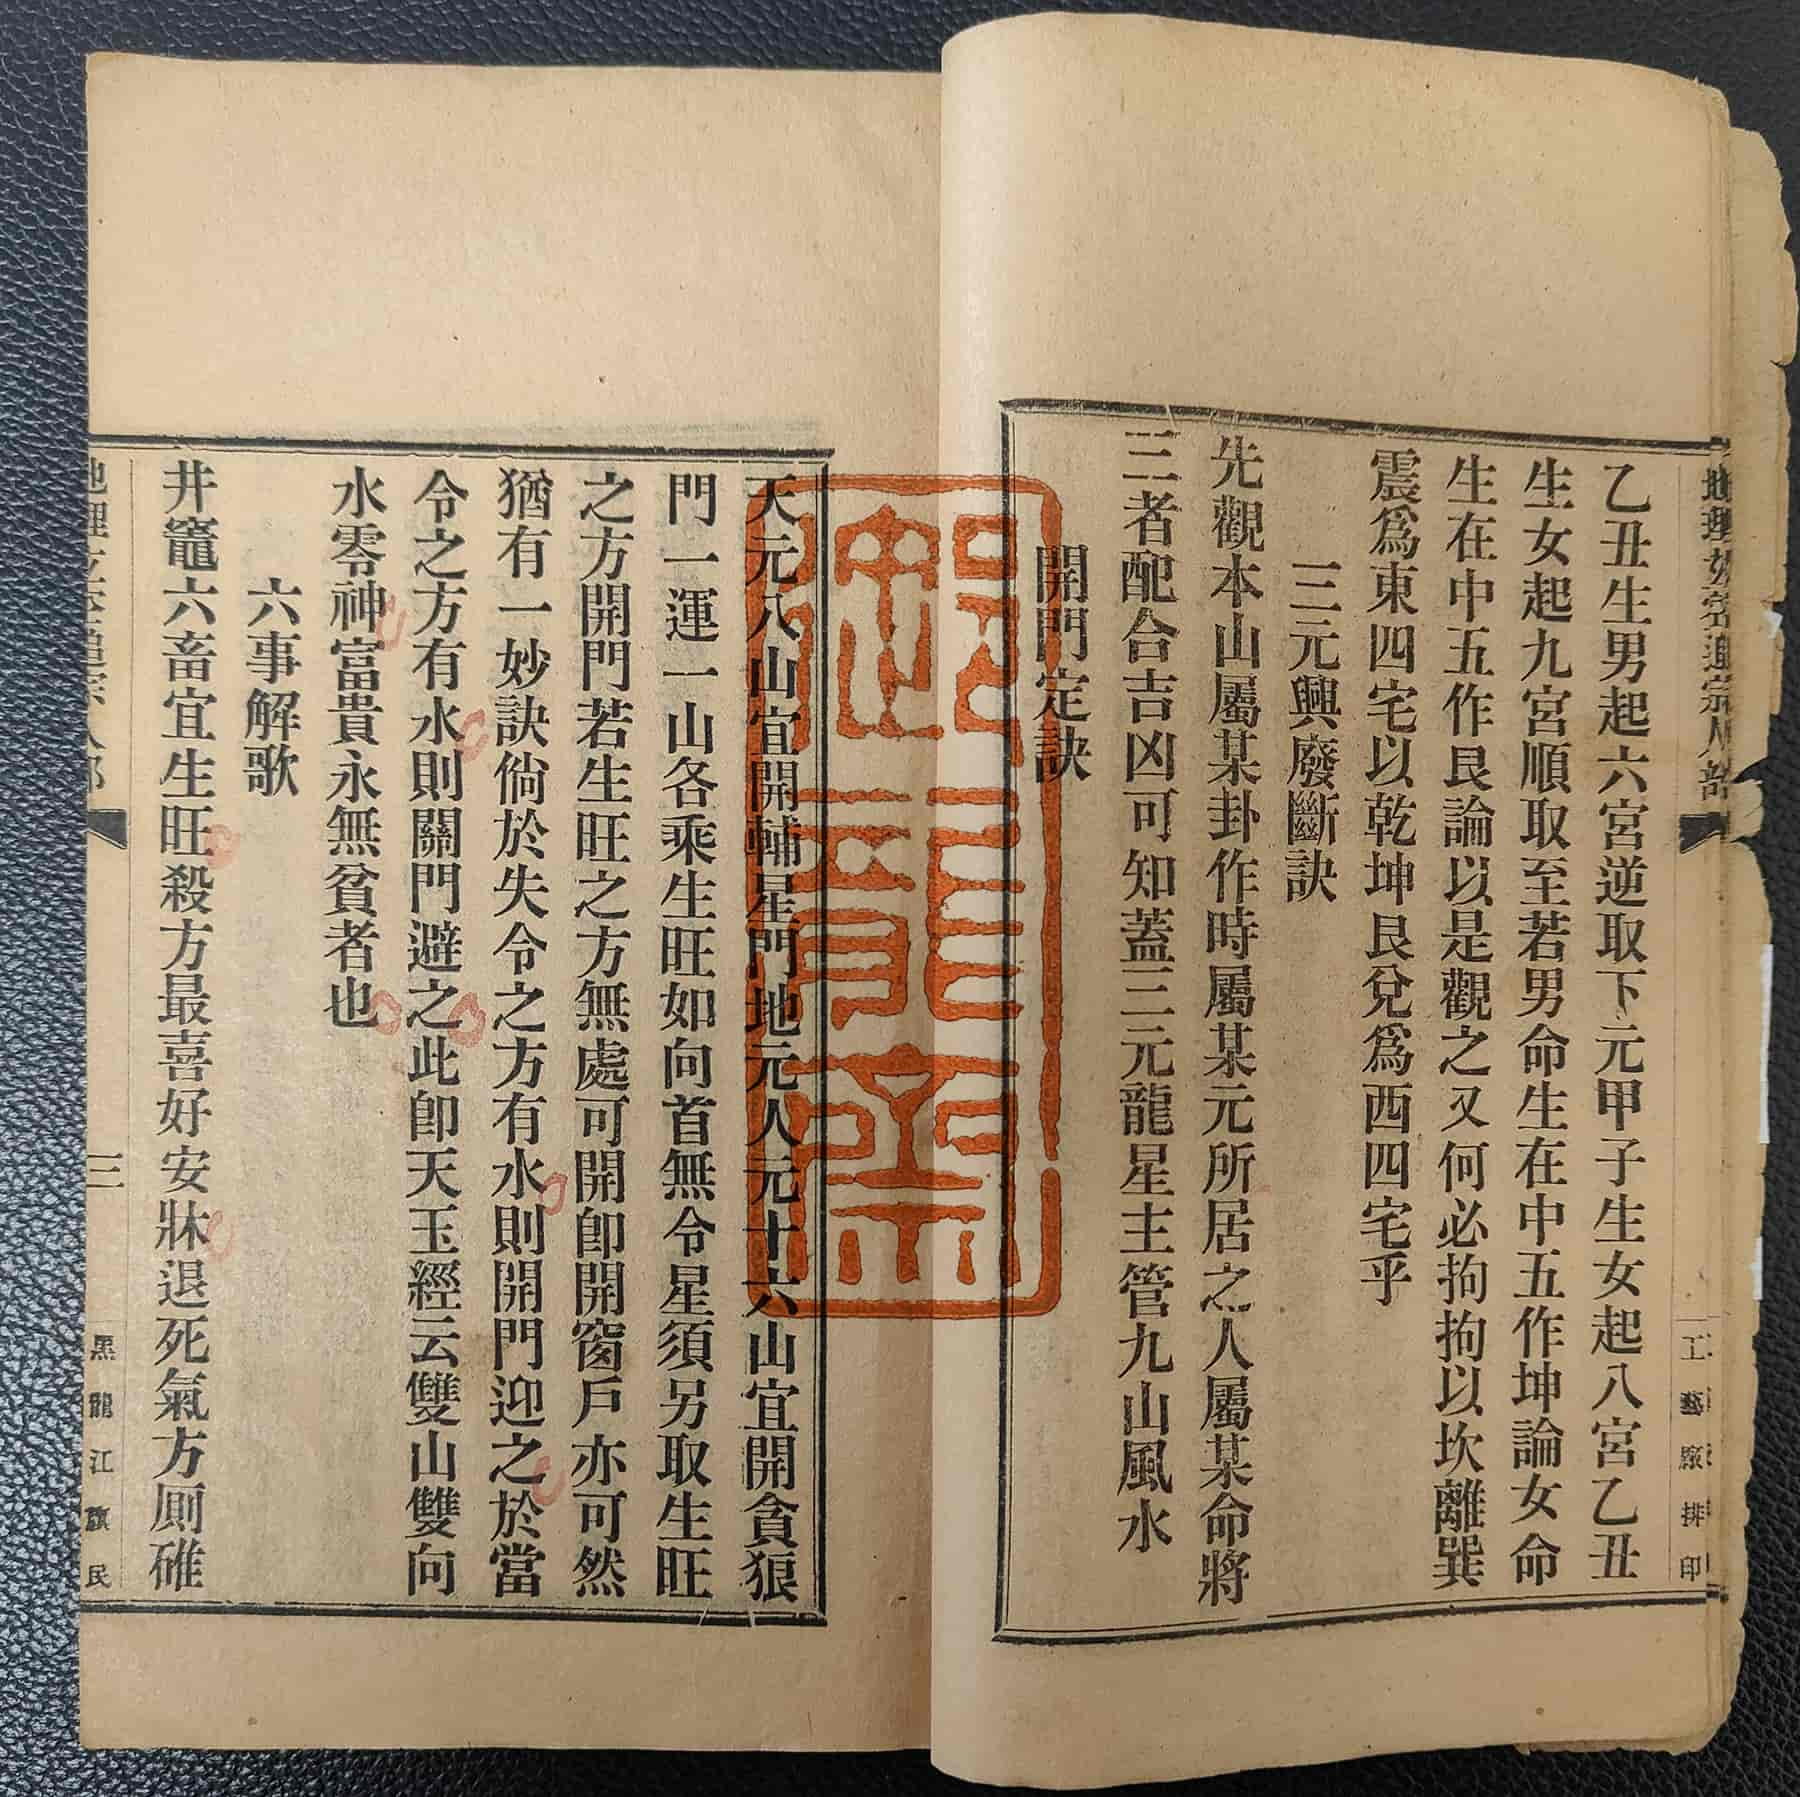 地理玄空通宗人部
工藝廠排印
乙丑生男起六宮逆取下元甲子生女起八宮乙丑
生女起九宮順取至若男命生在中五作坤論女命
生在中五作艮論以是觀之又何必拘拘以坎離巽
震爲東四宅以乾坤艮兌爲西四宅乎
三元興廢斷訣
先觀本山屬某卦作時屬某元所居之人屬某命將
三者配合吉凶可知蓋三元龍星主管九山風水
開門定訣
天元八山宜開輔星門地元人元十六山宜開貪狼
門一運一山各乘生旺如向首無令星須另取生旺
之方開門若生旺之方無處可開卽開窗戶亦可然
猶有一妙訣倘於失令之方有水則開門迎之於當
令之方有水則關門避之此卽天玉經云雙山雙向
水零神富貴永無貧者也
六事解歌
井竈六畜宜生旺殺方最喜好安牀退死氣方厠碓
三
黑龍江旗民